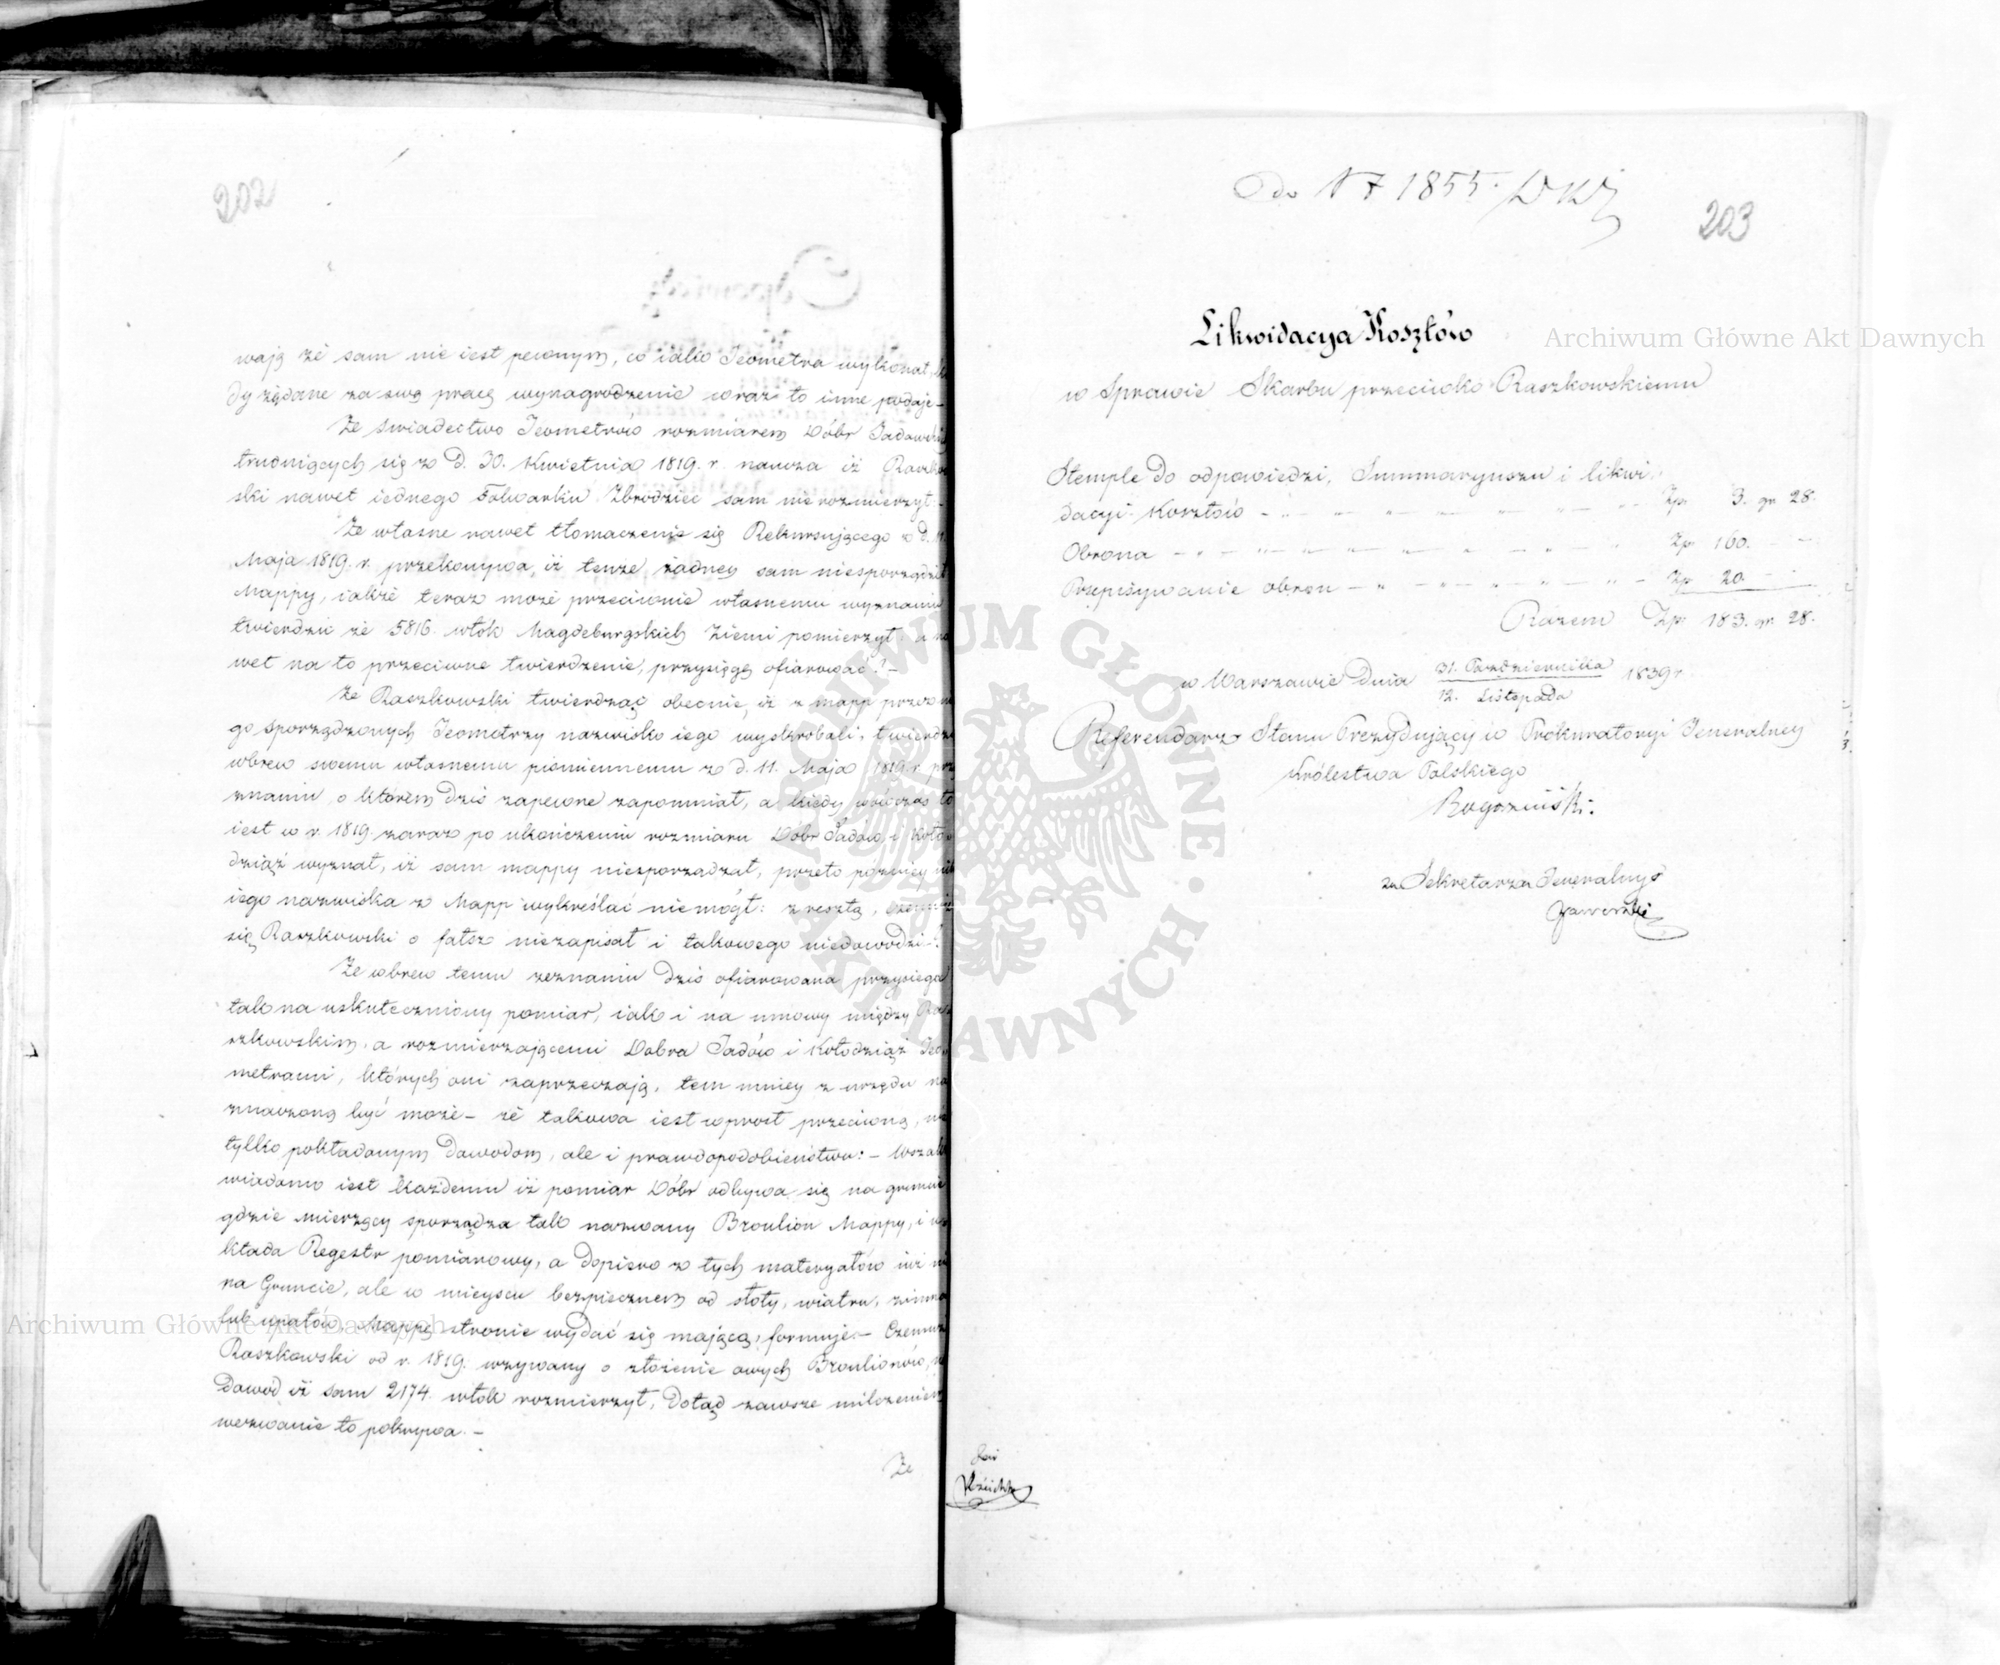 202
wają że sam nie iest pewnym, co iako Jeometra wykonał,
dy żądane za swą pracę wynagrodzenie coraz to inne podaje –
Że swiadectwo Jeometrów rozmiarem Dóbr Jadow
trudniących się z d. 30. Kwietnia 1819. r. naucza iż Raszkow
ski nawet iednego Folwarku Zbrodzice sam nie rozmierzył –
Że własne nawet tłomaczenie się Rekursującego z d. 11.
Maja 1819. r. przekonywa, iż tenże żadney sam niesporządził
Mappy, iakże teraz może przeciwnie własnemu wyznaniu
twierdzić że 5816. włók Magdeburgskich Ziemi pomierzył: a na
wet na to przeciwne twierdzenie, przysięgę ofiarować? –
Że Raszkowski twierdząc obecnie, iż z mapp przez nie
go sporządzonych Jeometrzy nazwisko iego wyskrobali, twierdzi
wbrew swemu własnemu piśmiennemu z d. 11. Maja 1819. r. przy
znaniu, o którem dziś zapewne zapomniał, a kiedy wówczas to
iest w r. 1819. zaraz po ukończeniu rozmiaru Dóbr Jadow i Koło
dziąż wyznał, iż sam mappy niesporządzał, przeto pózniey nikt
iego nazwiska z Mapp wykreślać niemógł: zresztą, czemuż
się Raszkowski o fałsz niezapisał i takowego niedowodzi?
Że wbrew temu zeznaniu dziś ofiarowana przysięga
tak na uskuteczniony pomiar, iak i na umowy między Ra
szkowskim, a rozmierzającemi Dobra Jadów i Kołodziąż Jeo
metrami, których oni zaprzeczają, tem mniey z urzędu na
znaczoną być może – że takowa iest wprost przeciwną, nie
tylko pokładanym dowodom, ale i prawdopodobieństwu: – Wszak
wiadomo iest każdemu iż pomiar Dóbr odbywa się na gruncie
gdzie mierzący sporządza tak nazwany Broulion Mappy, i u
kłada Regestr pomiarowy, a dopiero z tych materyałów już nie
na Gruncie, ale w mieyscu bezpiecznem od słoty, wiatru, zimna
lub upałów, Mappę stronie wydać się mającą, formuje. – Czemuż
Raszkowski od r. 1819. wzywany o złożenie owych Broulionów, na
dowód iż sam 2174. włók rozmierzył, dotąd zawsze milczeniem
wezwanie to pokrywa. –
Że
Do N 7 1855.
203
Likwidacya Kosztów
w Sprawie Skarbu przeciwko Raszkowskiemu
Stemple do odpowiedzi, Summaryuszu i likwi-
dacyi Kosztów – „ – „ – „ – „ – „ – Zp. 3. gr. 28.
Obrona – „ – „ – „ – „ – „ – „ – Zp. 160. –
Przepisywanie obron – „ – „ – „ – „ – „ – Zp. 20. –
Razem Zp. 183. gr. 28.
w Warszawie dnia 31. Października / 12. Listopada 1839 r.
Referendarz Stanu Prezydujący w Prokuratoryi Jeneralney
Królestwa Polskiego
za Sekretarza Jeneralnego
Jaworski
Archiwum Główne Akt Dawnych
Archiwum Główne Akt Dawnych
ARCHIWUM GŁÓWNE AKT DAWNYCH